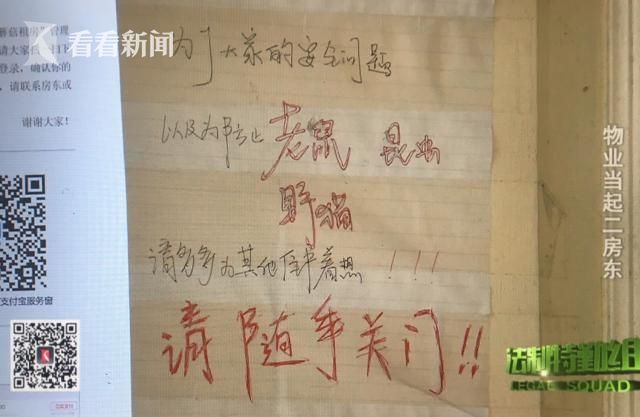 看看新闻
管理
请大家
登录，确认你的
，请联系房东或
谢谢大家！
支付宝服务窗
为了大家的安全问题
以及为防止 老鼠 昆虫
野猫
请多多为其他住户着想！！！
请随手关门!!
物业当起二房东
LEGAL SQUAD